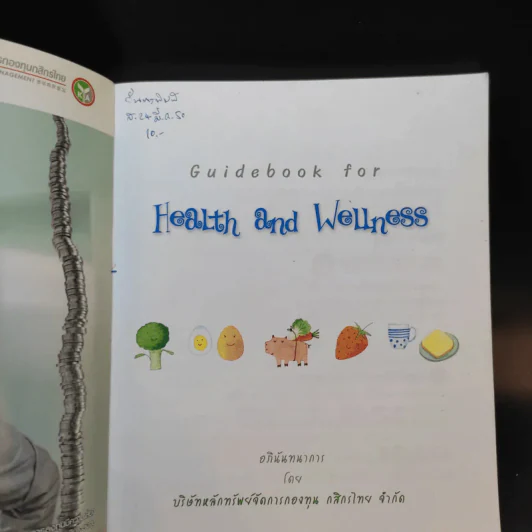 รกองทุนกสิกรไทย
NAGEMENT
ส. 24 มี.ค. 50
10.-
Guidebook for
Health and Wellness
อภินันทนาการ
โดย
บริษัทหลักทรัพย์จัดการกองทุน กสิกรไทย จำกัด